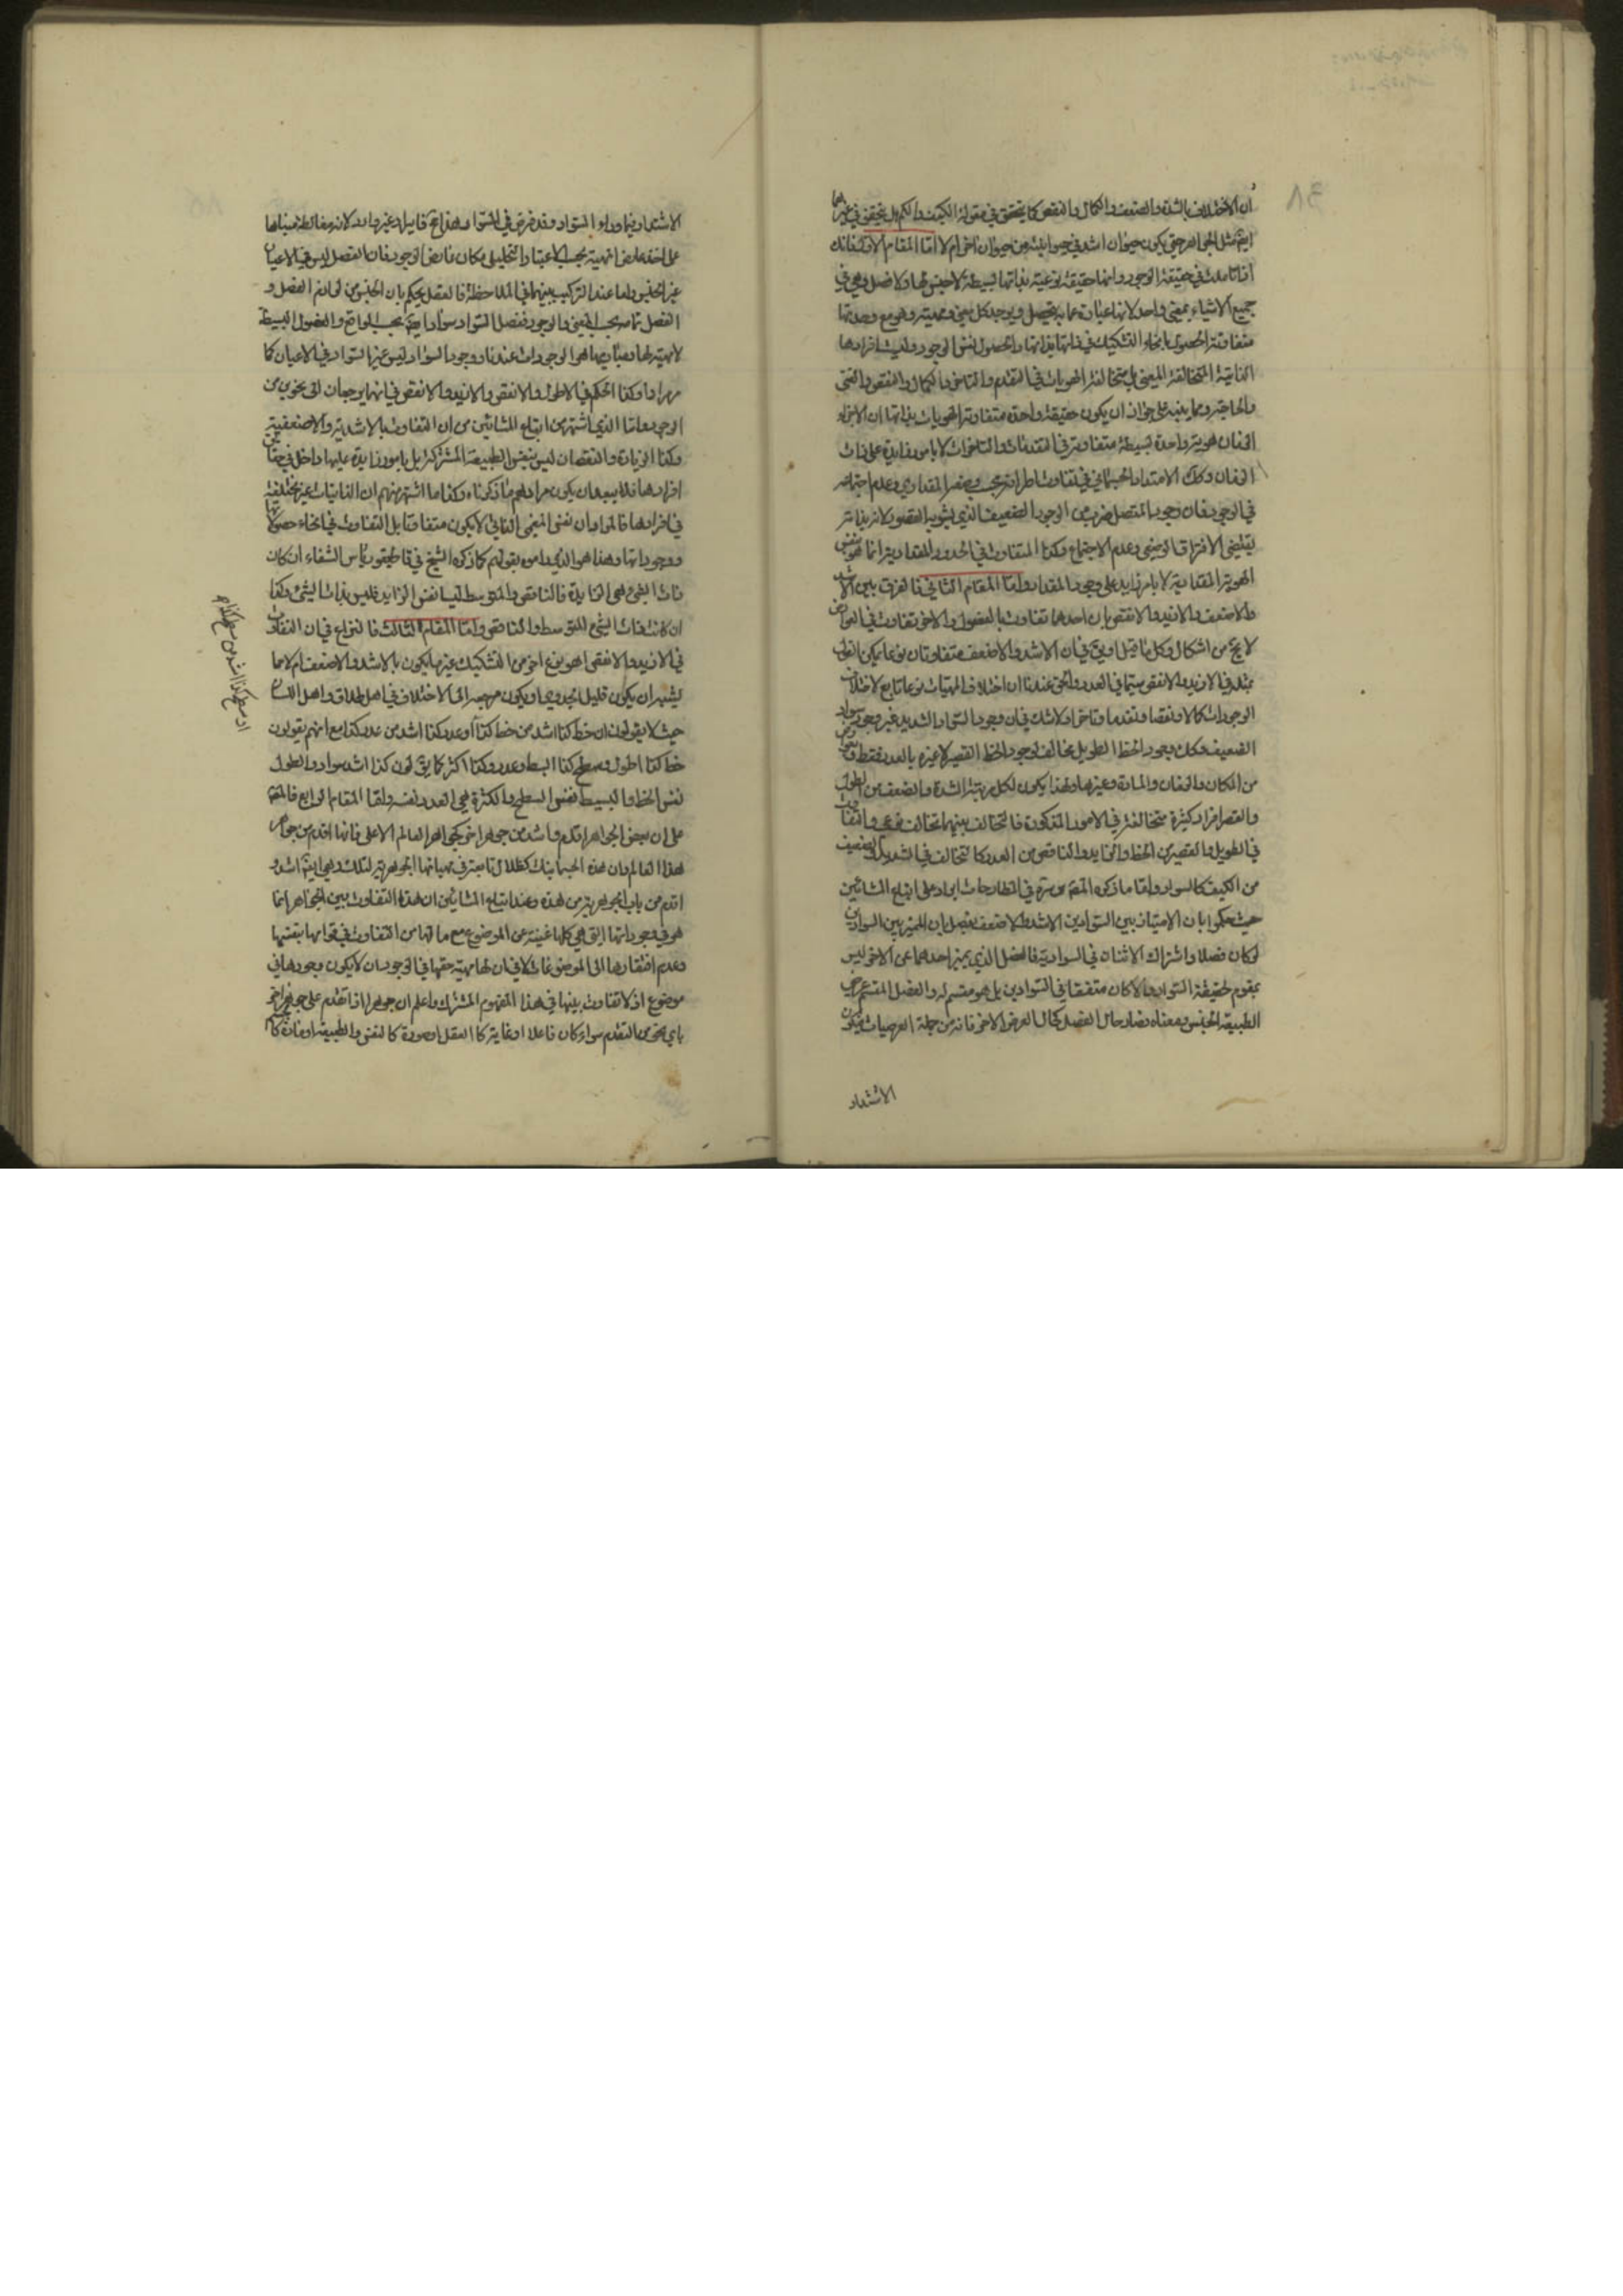 ان الاختلاف بالشدة والضعف والكمال والنقص كما يتحقق في مقولة الكيف والكم هل يتحقق في غيرهما
ايضا مثل الجواهر حتى يكون حيوان اشد في حيوانيته من حيوان اخر ام لا اما المقام الاول فانك
اذا تاملت في حقيقة الوجود وانها حقيقة نوعية بذاتها بسيطة لا جنس لها ولا فصل وهي في
جميع الاشياء بمعنى واحد لانها عبارة عما به يتحصل ويوجد كل معنى ومهية وهو مع وحدتها
متفاوتة الحصول بانحاء التشكيك في ذاتها بذاتها والحصول لنفس الوجود وليست افرادها
الذاتية المتخالفة المعنى بل متخالفة الهويات في التقدم والتاخر والكمال والنقص والغنى
والحاجة ومما ينبه على جواز ان يكون حقيقة واحدة متفاوتة الهويات بذاتها ان الاجزاء
الزمان هوية واحدة بسيطة متفاوتة في التقدمات والتاخرات لا بامور زايدة على ذات
الزمان وكك الامتداد الجسماني في تفاوت اطرافه بحسب وضعه المقداري وعدم اجتماعه
في الوجود فان وجود المتصل ضرب من الوجود الضعيف الذي يشوبه القصور لانه بذاته
يقتضي الافتراق الوضعي وعدم الاجتماع وكذا المتفاوت في الحدود المقدارية انما هو بنفس
الهوية المقدارية لا بامر زايد على وجود المقدار واما المقام الثاني فالفرق بين الاشد
والاضعف والازيد والانقص بان احدهما تفاوت بالفصول والاخر تفاوت في العوارض
لا يخ من اشكال وكل ما قيل او يق في ان الاشد والاضعف متفاوتان نوعا يمكن القول
بمثله في الازيد والانقص سيما في العدد والحق عندنا ان اختلاف المهيات نوعا تابع لاختلاف
الوجودات كمالا ونقصا وتقدما وتاخرا ولا شك في ان وجود السواد الشديد غير وجود سواد
الضعيف وكك وجود الخط الطويل مخالف لوجود الخط القصير لا غيره بالعدد فقط
من المكان والزمان والمادة وغيرها ولهذا يكون لكل مرتبة الشدة والضعف من الطول
والقصر افراد كثيرة متخالفة في الامور المذكورة فالتخالف بينهما تخالف نوعي واتفاق
في الطويل والقصير من الخط والزايد والناقص من العدد كالتخالف في الشديد والضعيف
من الكيف كالسواد واما ما ذكره المقم في المطارحات ايراد على اتباع المشائين
حيث حكموا بان الامتياز بين السوادين الاشد والاضعف بفصل بان المميز بين السوادين
لو كان فصلا واشتراك الاثنان في السوادية فالفصل الذي يميز احدهما عن الاخر ليس
بمقوم لحقيقة السواد والا كان متفقا في السوادين بل هو مقسم له والفصل المقسم عرضي
الطبيعة الجنس ومعناه فصار حال الفصل كحال العرض الاخر فانه من جملة العرضيات فيكون
الاشتداد
الاشتداد فيما وراء السواد وقد فرض في السواد هذا غير وارد لانه مغالطة مبناها
على اخذ عارض المهية بحسب الاعتبار والتحليل مكان عارض الوجود فان الفصل ليس في الاعيان
غير الجنس واما عند التركيب بينهما في الملاحظة فالعقل يحكم بان الجنس من لوازم الفصل و
الفصل خاصة بحسب المعنى والوجود ففصل السواد سواد ايضا بحسب الواقع والفصول البسيطة
لا مهية لها وعباراتها هو الوجودات عندنا ووجود السواد ليس غير السواد في الاعيان كما
مر مرارا وكذا الحكم في الاطول والانقص والازيد والانقص في انهما يرجعان الى نحوين من
الوجود واما الذي اشتهر من اتباع المشائين من ان التفاوت بالاشدية والاضعفية
وكذا الزيادة والنقصان ليس بنفس الطبيعة المشتركة بل بامور زايدة عليها داخل في حقايق
افرادها فلا يبعد ان يكون مرادهم ما ذكرناه وكذا ما اشتهر منهم ان الذاتيات غير مختلفة
في افرادها فالمراد ان نفس المعنى الذاتي لا يكون متفاوتا بل التفاوت في انحاء حصولاتها
ووجوداتها وهذا هو الذي راموه بقولهم كما ذكره الشيخ في قاطيقورياس الشفاء ان كان
ذات الشئ هي الزايدة فالناقص والمتوسط ليسا نفس الزايد فليس بذات الشئ وكذا
ان كانت ذات الشئ المتوسط والناقص واما المقام الثالث فالنزاع في ان التفاوت
في الازيد والانقص اهو نوع اخر من التشكيك غير ما يكون بالاشد والاضعف ام لا مما
يشبه ان يكون قليل الجدوى ويكون مرجعه الى الاختلاف في اصل اطلاق اهل اللسان
حيث لا يقولون ان خط كذا اشد من خط كذا او عدد كذا اشد من عدد كذا مع انهم يقولون
خط كذا اطول وسطح كذا ابسط وعدد كذا اكثر كما يق لون كذا اشد سوادا والطول
نفس الخط والبسيط نفس السطح والكثرة هي العدد نفسه واما المقام الرابع فالمقم
على ان بعض الجواهر اقدم واشد من جوهر اخر كجواهر العالم الاعلى فانها اقدم من جواهر
هذا العالم وان هذه الجسمانيات كظلال تابعة في مهياتها الجوهرية لتلك وهي ايضا اشد و
اقدم من باب الجوهرية من هذه وعند اتباع المشائين ان هذا التفاوت بين الجواهر انما
هو في وجوداتها التي هي كلها غنية عن الموضوع مع ما لها من التفاوت في قوامها بنفسها
وعدم افتقارها الى الموضوعات لا في ان لها مهية حقها في الوجود ان لا يكون وجودها في
موضوع اذ لا تفاوت بينها في هذا المفهوم المشترك واعلم ان جوهرا اذا تقدم على جوهر اخر
باي نحو من التقدم سواء كان فاعلا او غاية كالعقل او صورة كالنفس والطبيعة او مادة
او سطح كذا اشد من سطح كذا